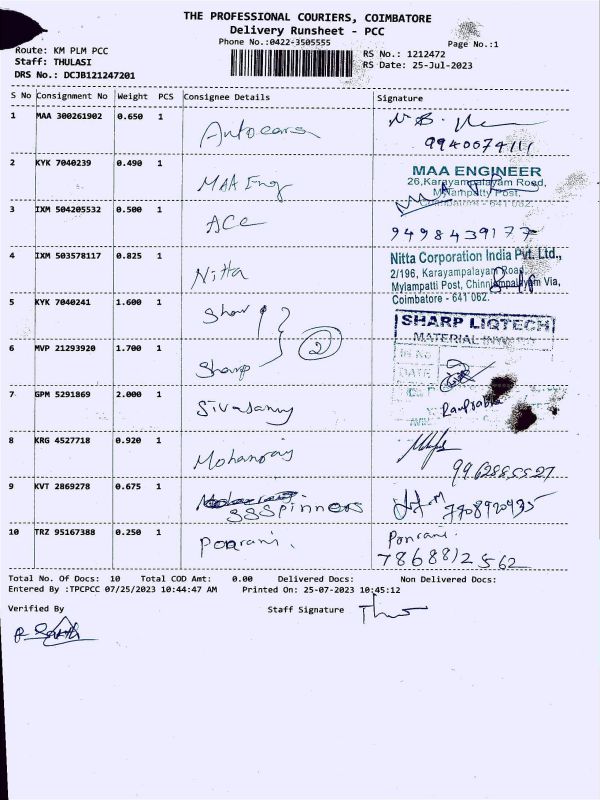 THE PROFESSIONAL COURIERS, COIMBATORE
Delivery Runsheet - PCC
Phone No.:0422-3505555
Page No.:1
Route: KM PLM PCC
Staff: THULASI
DRS No.: DCJB121247201
RS No.: 1212472
RS Date: 25-Jul-2023
S No Consignment No Weight PCS Consignee Details Signature
1 MAA 300261902 0.650 1 Autocars
9940074111
2 KYK 7040239 0.490 1 MAA Eng
MAA ENGINEER
26,Karayampalayam Road,
Mylampatty Post,
Coimbatore - 641 062.
3 IXM 504205532 0.500 1 ACe
9498439177
4 IXM 503578117 0.825 1 Nitta
Nitta Corporation India Pvt. Ltd.,
2/196, Karayampalayam Road,
Mylampatti Post, Chinniampalayam Via,
Coimbatore - 641 062.
5 KYK 7040241 1.600 1 Sharp
2
SHARP LIQTECH
MATERIAL INWARD
6 MVP 21293920 1.700 1 Sharp
DATE
7 GPM 5291869 2.000 1 Sivasamy
8 KRG 4527718 0.920 1 Mohanraj
9 KVT 2869278 0.675 1 SSSpinners
7708920435
10 TRZ 95167388 0.250 1 Ponrani.
Ponrani.
7868812562
Total No. Of Docs: 10 Total COD Amt: 0.00 Delivered Docs: Non Delivered Docs:
Entered By :TPCPCC 07/25/2023 10:44:47 AM Printed On: 25-07-2023 10:45:12
Verified By
Staff Signature